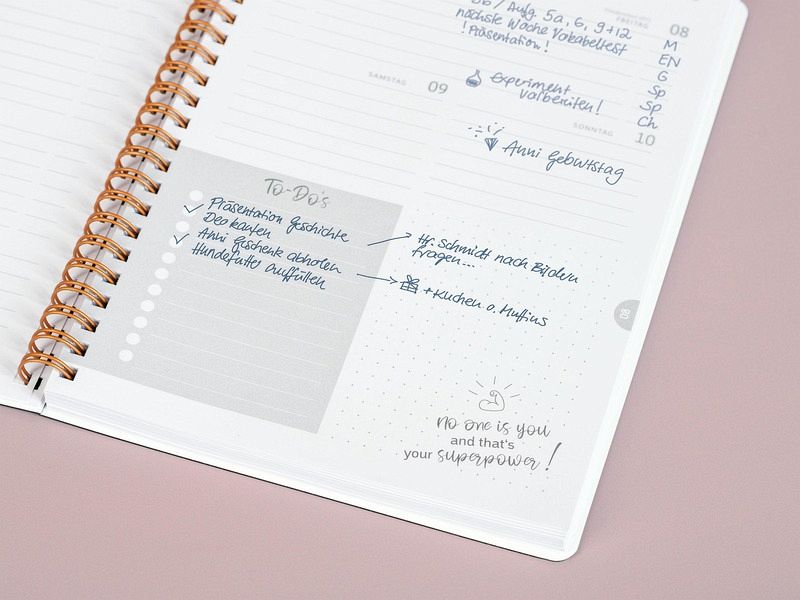 Aufg. 5a, 6, 9+12
FREITAG 08
nächste Woche Vokabeltest
! Präsentation !
M
EN
G
Sp
Sp
Ch
SAMSTAG 09
Experiment
vorbereiten!
SONNTAG 10
Anni Geburtstag
To-Do's
Präsentation Geschichte
Deo kaufen
Anni Geschenk abholen
Hundefutter auffüllen
Hr. Schmidt nach Bildern
fragen...
+ Kuchen o. Muffins
08
no one is you
and that's
your superpower!